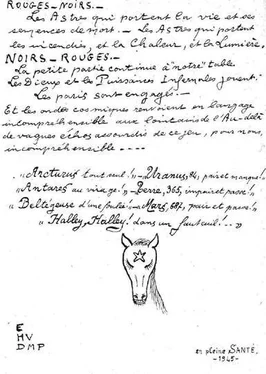 ROUGES-NOIRS._
Les Astres qui portent la vie et ses
semences de mort._ Les Astres qui portent
les incendies, et la Chaleur, et la Lumière,
NOIRS-ROUGES._
La petite partie continue à "notre" table.
Les Dieux et les Puissances Infernales jouent.
Les paris sont engagés._
Et les ondes cosmiques renvoient en langage
incompréhensible aux lointains de l'Au-delà
de vagues échos assourdis de ce jeu, pour nous,
incompréhensible_ _ _ _
"Arcturus tout seul!"_"Uranus, 84, pair et manque!"
"Antares au virage!"_Terre, 365, impair et passe!"
"Bételgeuse d'une foulée!"_Mars, 687, et passe!"
"Halley, Halley! dans un fauteuil!..."
E
HV
DMP
en pleine SANTÉ,
-1945-